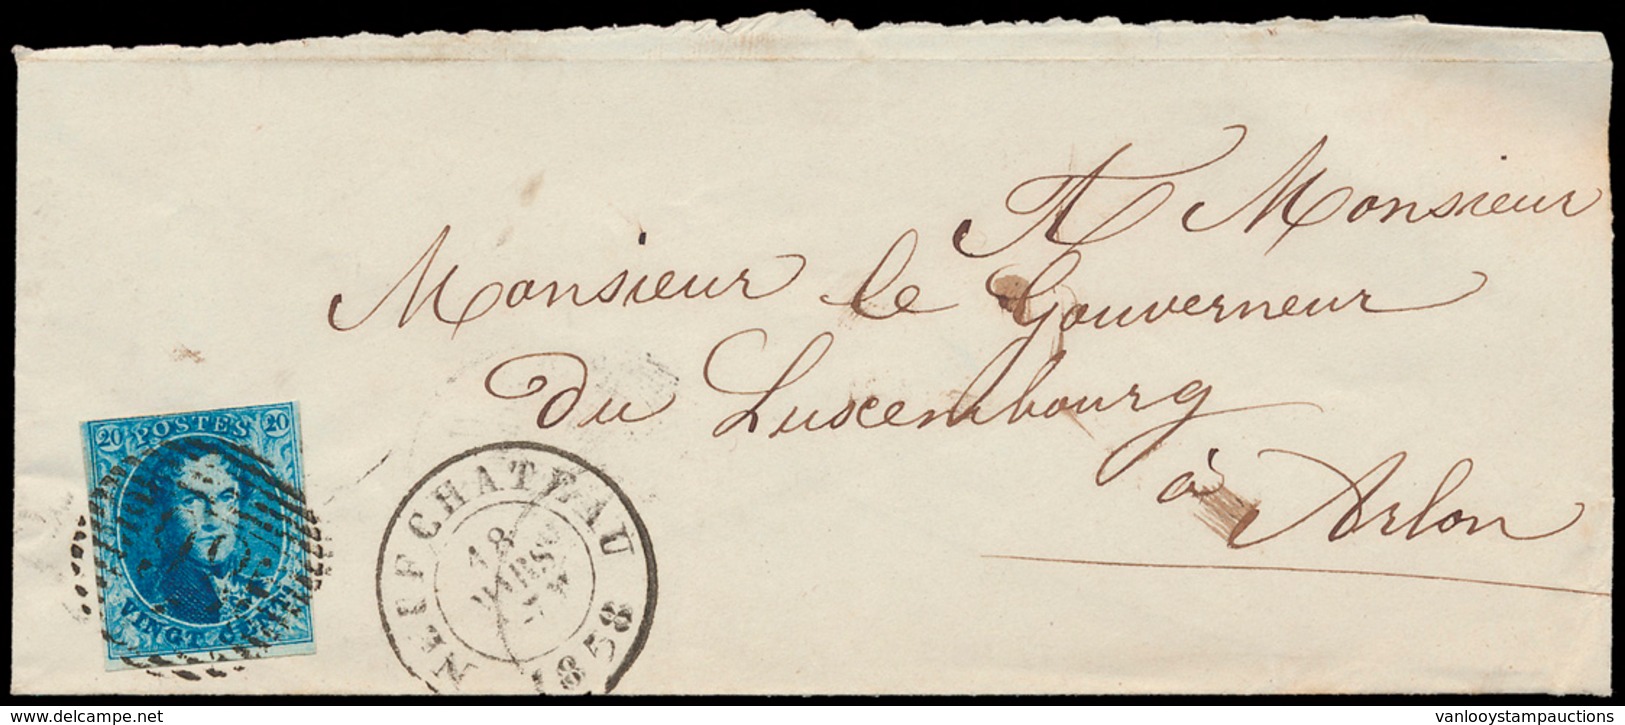 A Monsieur
Monsieur le Gouverneur
du Luxembourg
à Arlon
20 POSTES 20
VINGT CENT
NEUFCHATEAU
18
MARS
1858
© vanlooystampauctions